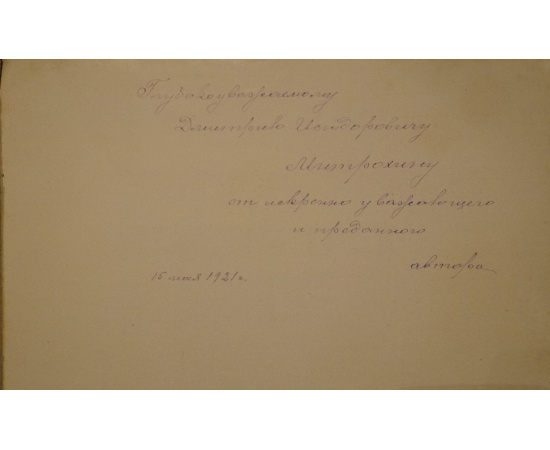 Глубокоуважаемому
Дмитрию Исидоровичу
Митрохину
от искренно уважающего
и преданного
автора
15 мая 1921 г.